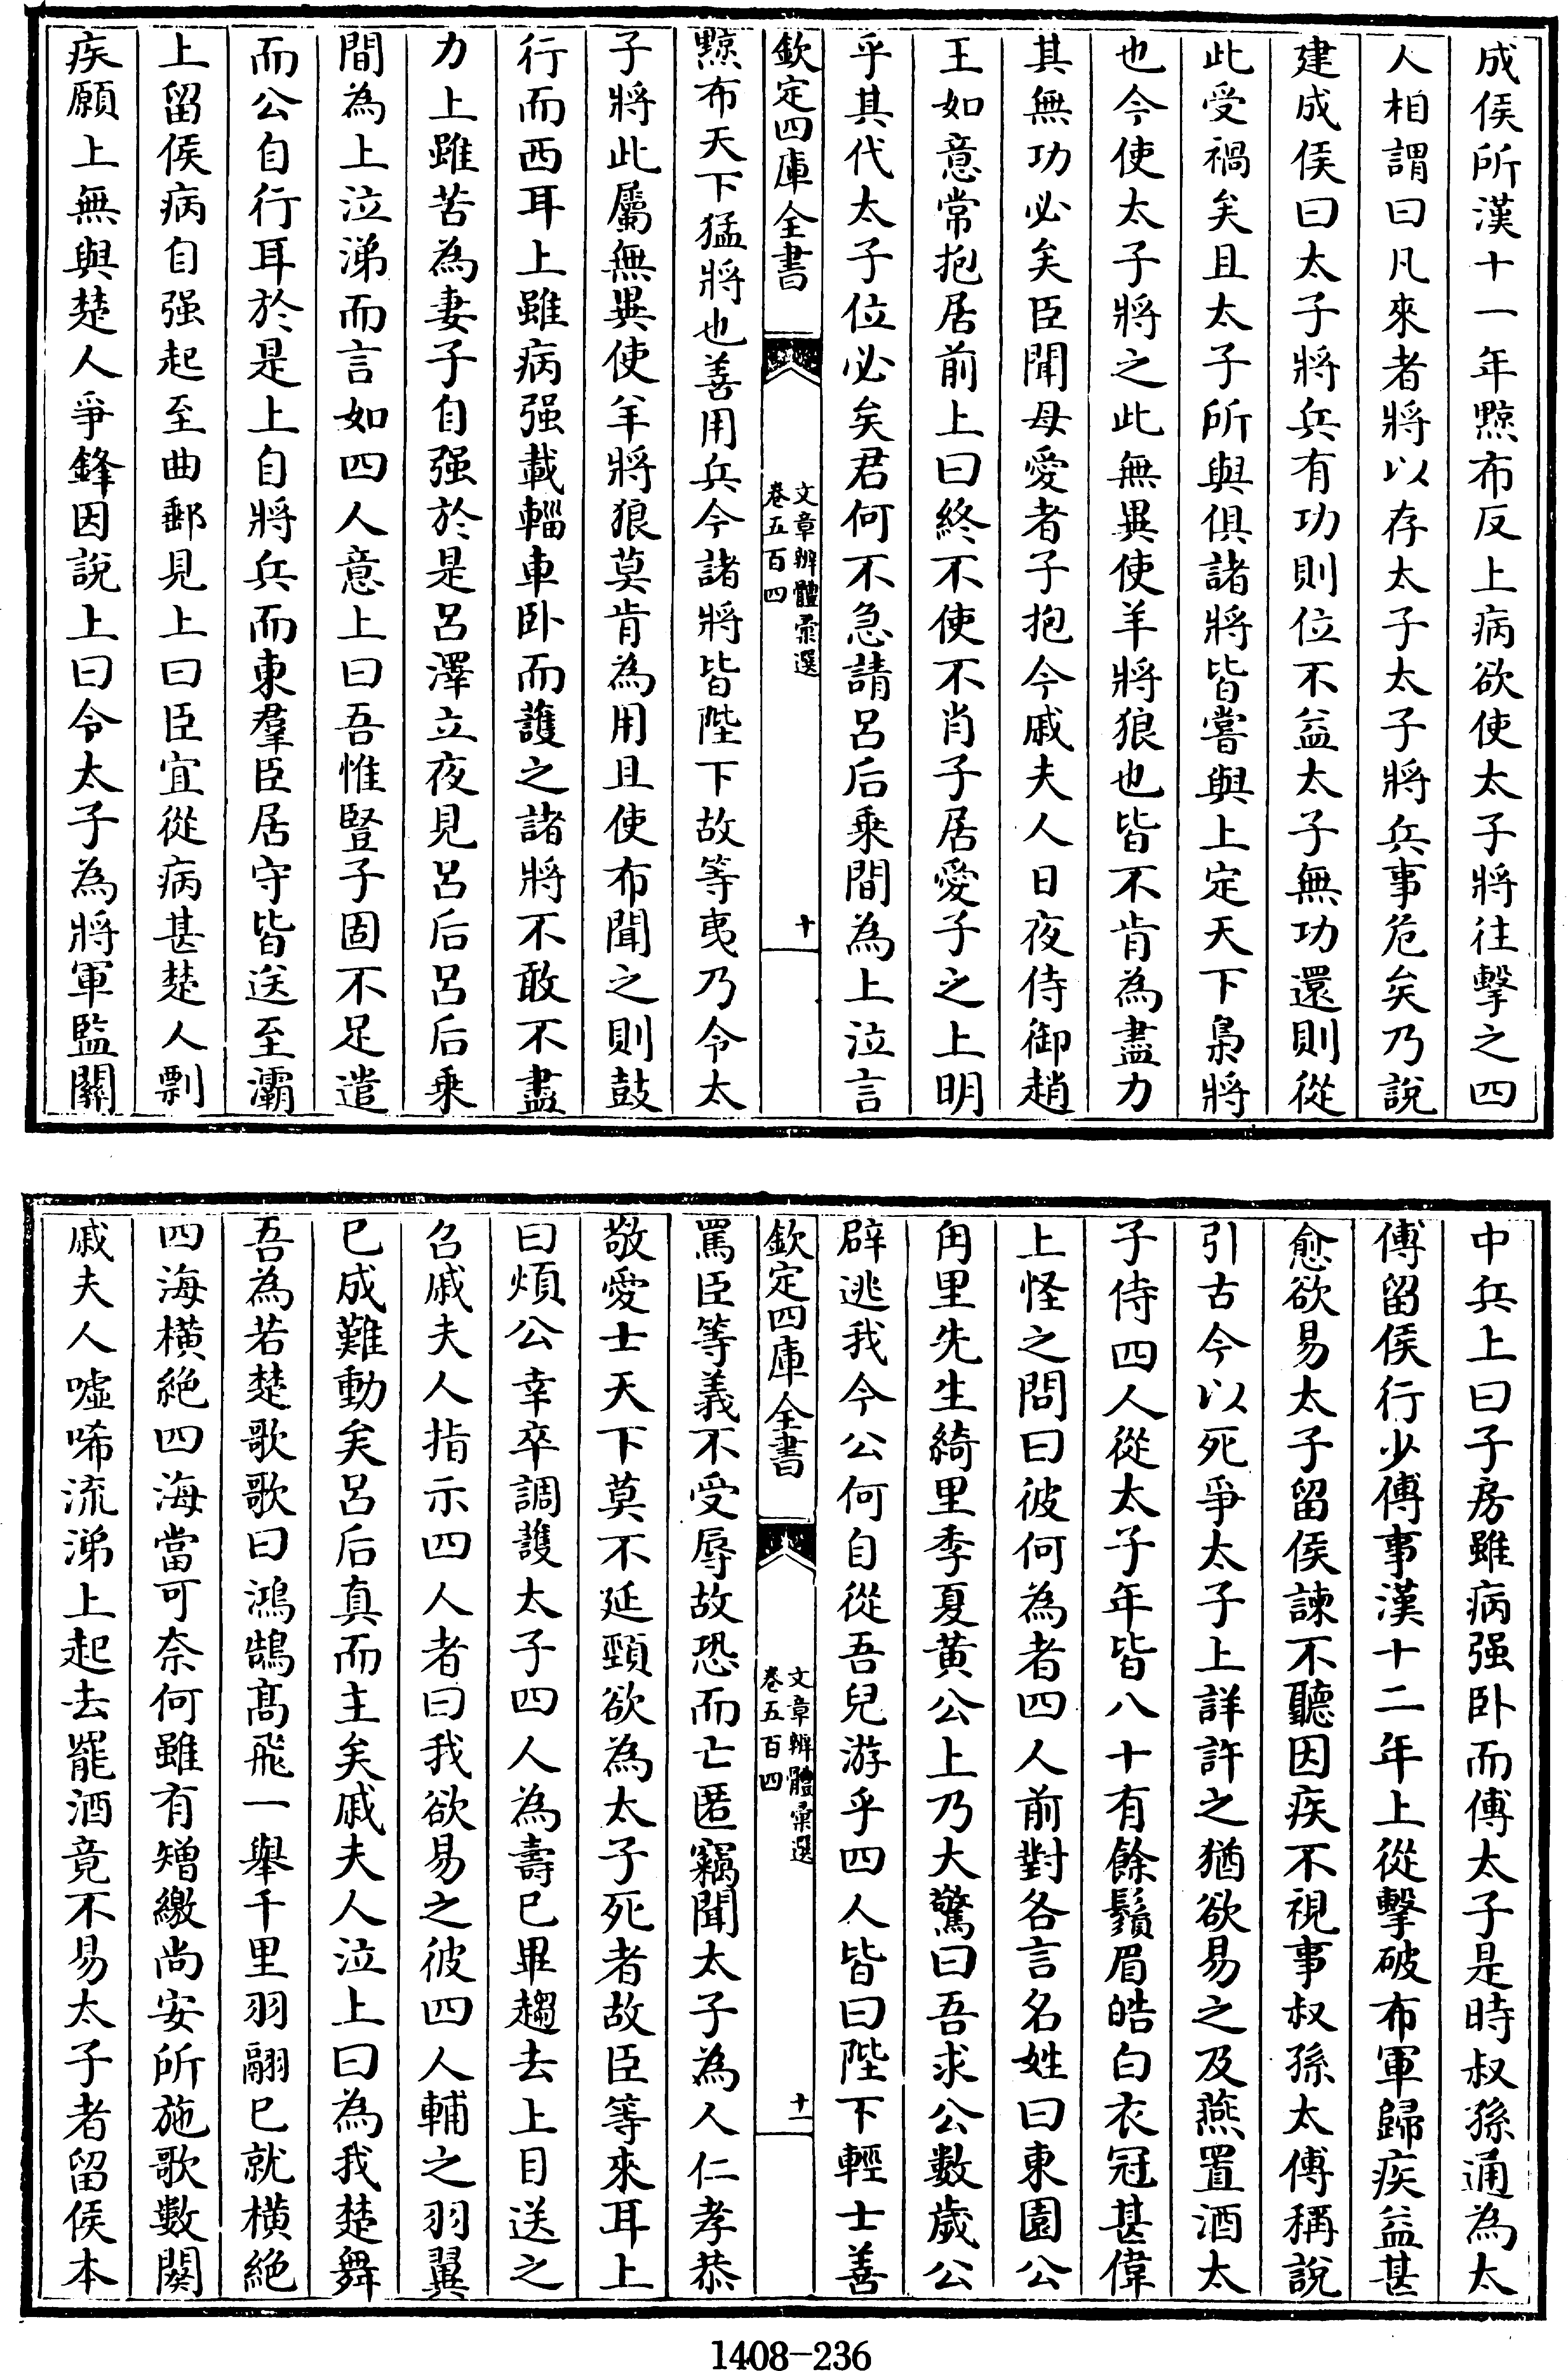 成侯所漢十一年黥布反上病欲使太子將往擊之四
人相謂曰凡來者將以存太子太子將兵事危矣乃說
建成侯曰太子將兵有功則位不益太子無功還則從
此受禍矣且太子所與俱諸將皆嘗與上定天下梟將
也今使太子將之此無異使羊將狼也皆不肯為盡力
其無功必矣臣聞母愛者子抱今戚夫人日夜侍御趙
王如意常抱居前上曰終不使不肖子居愛子之上明
乎其代太子位必矣君何不急請呂后乗間為上泣言
欽定四庫全書
文章辨體彙選
卷五百四
十
黥布天下猛將也善用兵今諸將皆陛下故等夷乃令太
子將此屬無異使羊將狼莫肯為用且使布聞之則鼓
行而西耳上雖病强載輜車卧而護之諸將不敢不盡
力上雖苦為妻子自强於是呂澤立夜見呂后呂后乗
間為上泣涕而言如四人意上曰吾惟豎子固不足遣
而公自行耳於是上自將兵而東羣臣居守皆送至灞
上留侯病自强起至曲郵見上曰臣宜從病甚楚人剽
疾願上無與楚人爭鋒因說上曰令太子為將軍監關
中兵上曰子房雖病强卧而傅太子是時叔孫通為太
傅留侯行少傅事漢十二年上從擊破布軍歸疾益甚
愈欲易太子留侯諫不聽因疾不視事叔孫太傅稱說
引古今以死爭太子上詳許之猶欲易之及燕置酒太
子侍四人從太子年皆八十有餘鬚眉皓白衣冠甚偉
上怪之問曰彼何為者四人前對各言名姓曰東園公
甪里先生綺里季夏黄公上乃大驚曰吾求公數歲公
辟逃我今公何自從吾兒游乎四人皆曰陛下輕士善
欽定四庫全書
文章辨體彙選
卷五百四
十一
罵臣等義不受辱故恐而亡匿竊聞太子為人仁孝恭
敬愛士天下莫不延頸欲為太子死者故臣等來耳上
曰煩公幸卒調護太子四人為壽已畢趨去上目送之
召戚夫人指示四人者曰我欲易之彼四人輔之羽翼
已成難動矣呂后真而主矣戚夫人泣上曰為我楚舞
吾為若楚歌歌曰鴻鵠髙飛一舉千里羽翮已就橫絶
四海橫絶四海當可奈何雖有矰繳尚安所施歌數闋
戚夫人噓唏流涕上起去罷酒竟不易太子者留侯本
1408-236